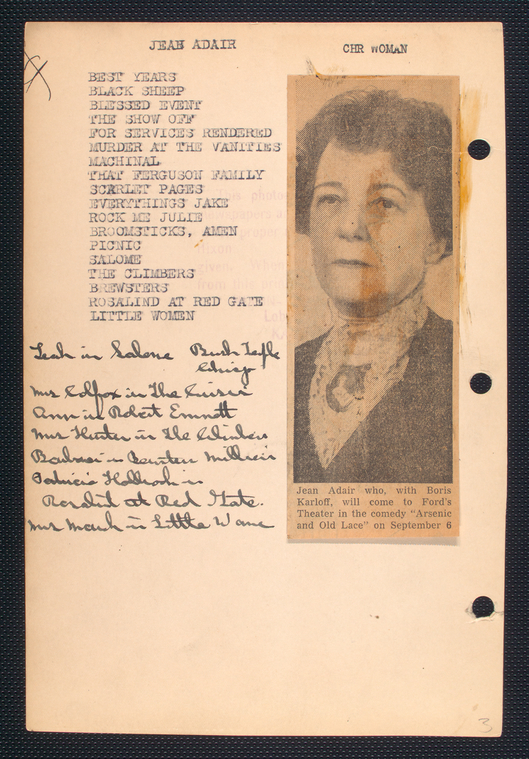 JEAN ADAIR
CHR WOMAN
BEST YEARS
BLACK SHEEP
BLESSED EVENT
THE SHOW OFF
FOR SERVICES RENDERED
MURDER AT THE VANITIES
MACHINAL
THAT FERGUSON FAMILY
SCARLET PAGES
EVERYTHINGS JAKE
ROCK ME JULIE
BROOMSTICKS, AMEN
PICNIC
SALOME
THE CLIMBERS
BREWSTERS
ROSALIND AT RED GATE
LITTLE WOMEN
Leah in Salome Bush Temple
Chicago
Mrs Colfax in The
Ann in Robert Emmett
Mrs Hunter in The Climbers
in
Patricia Holbrook in
Rosalind at Red Gate.
Mrs March in Little Women
Jean Adair who, with Boris
Karloff, will come to Ford's
Theater in the comedy "Arsenic
and Old Lace" on September 6
3